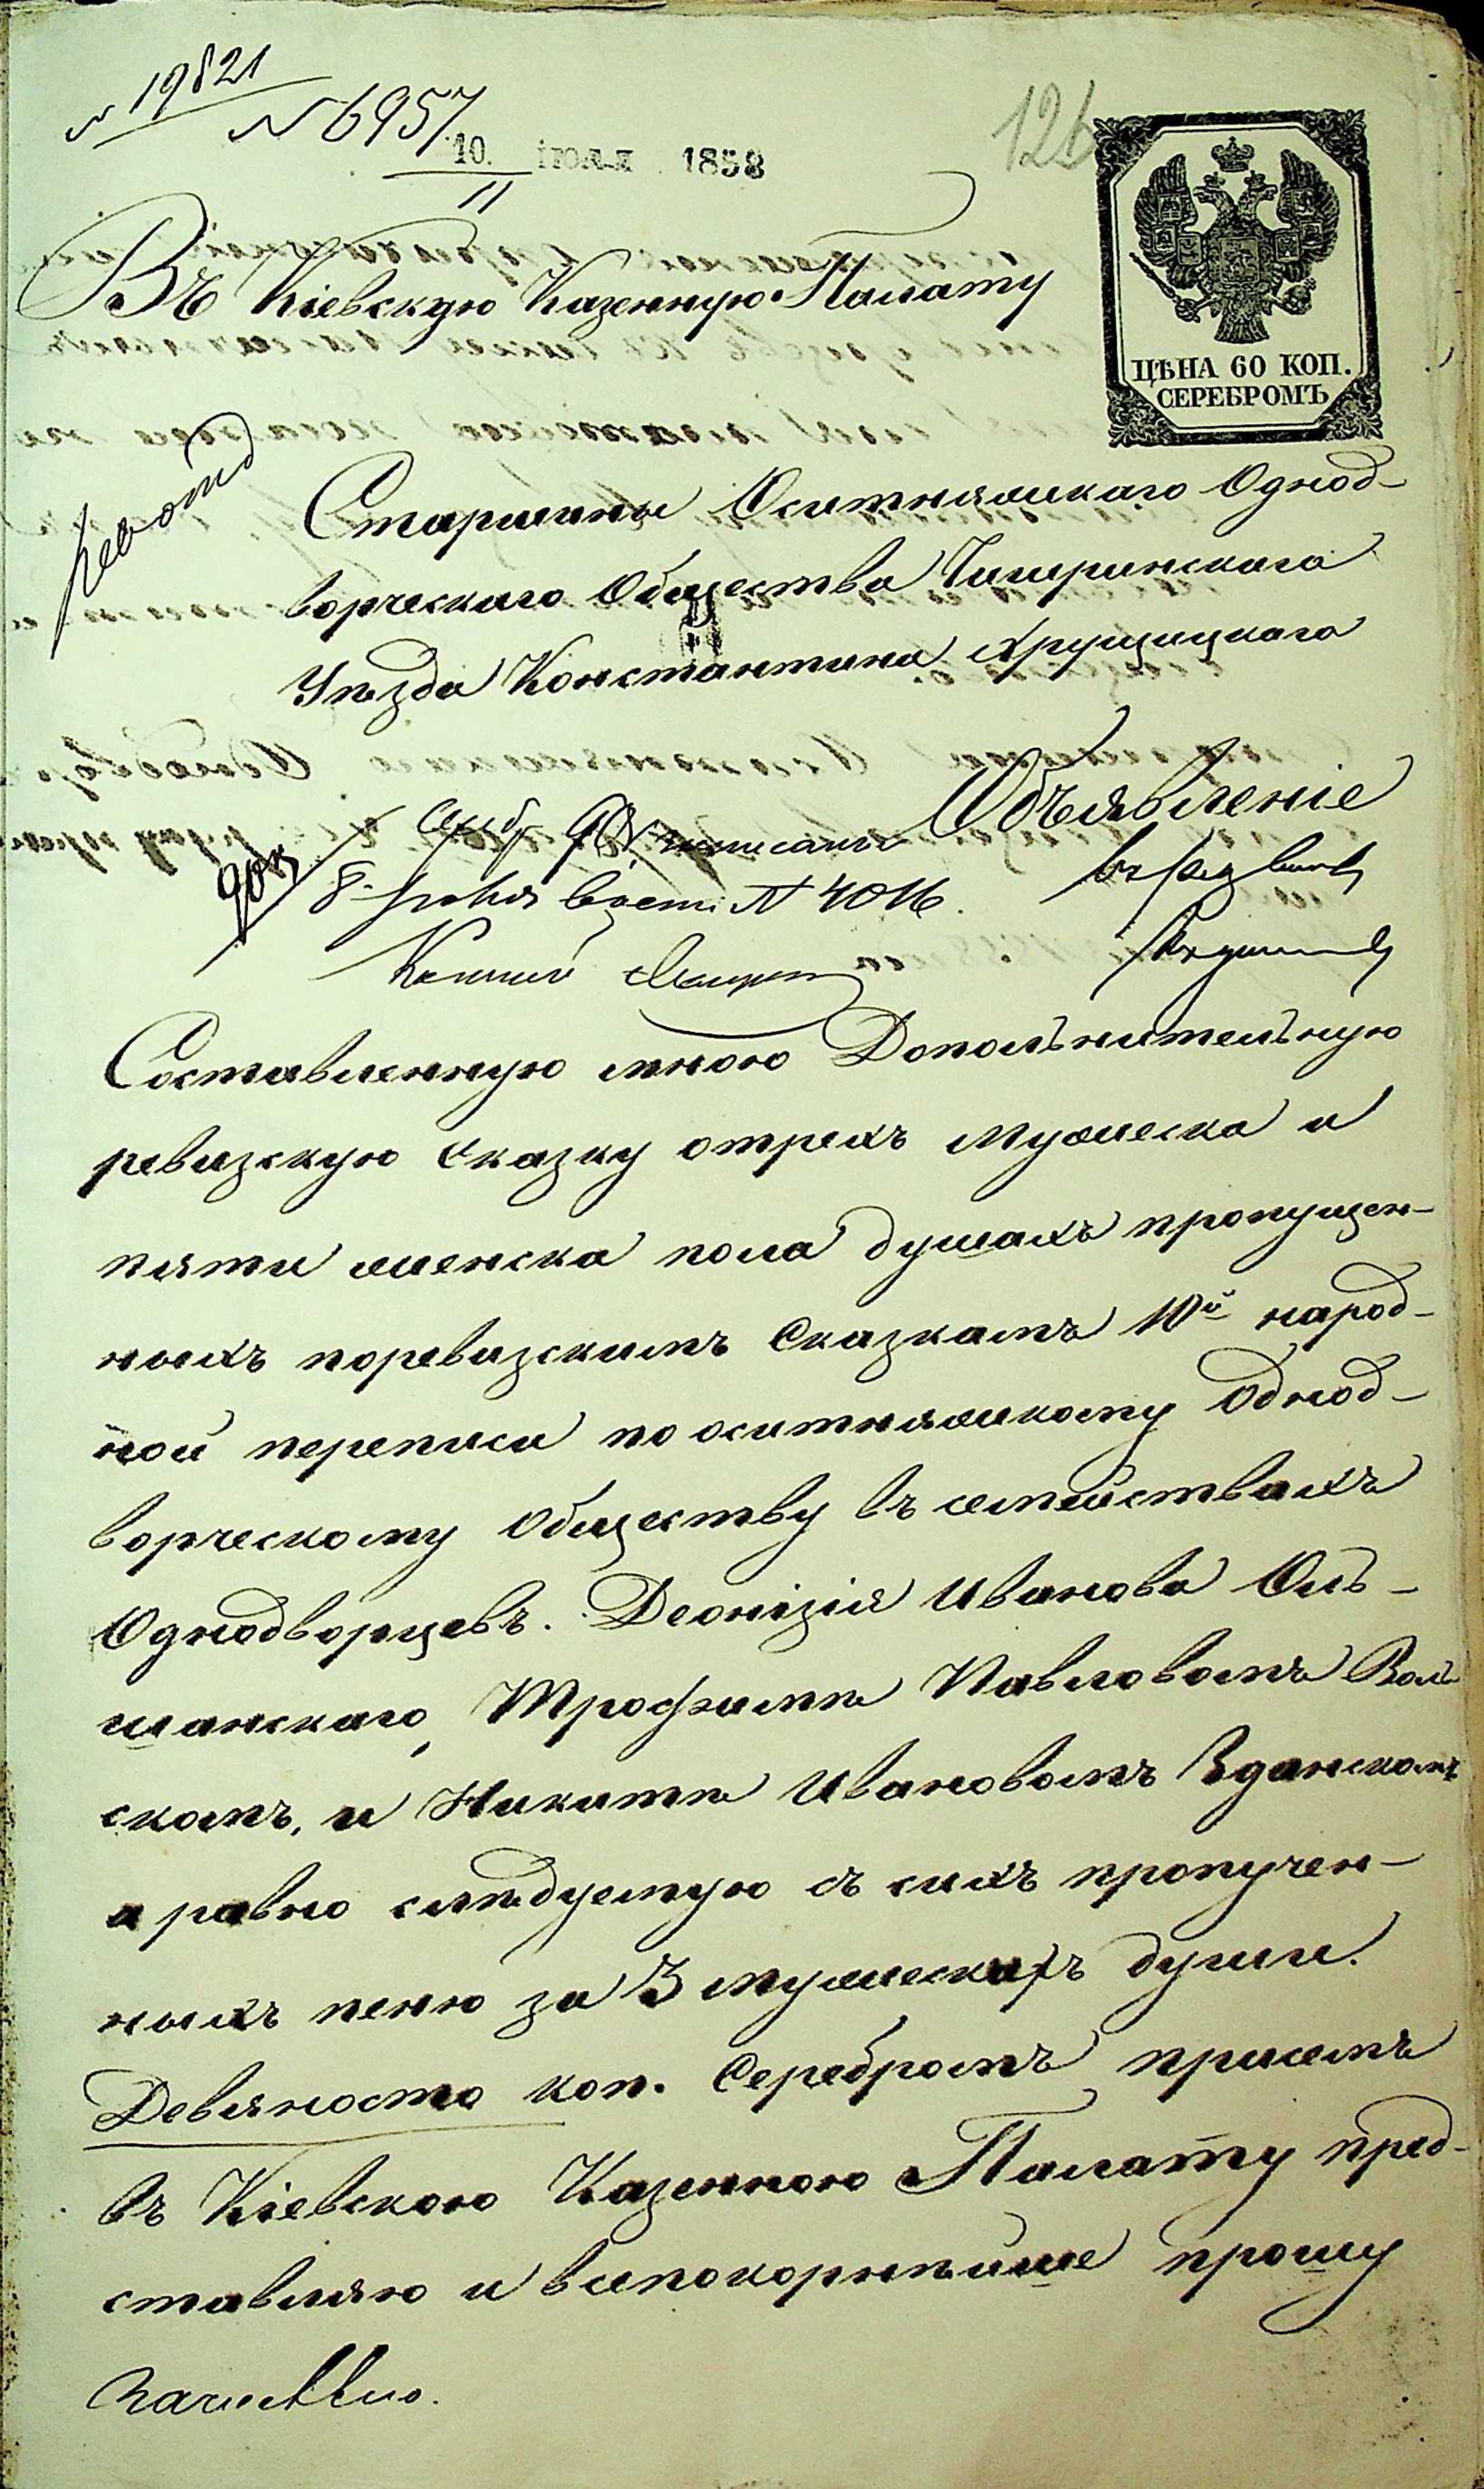 № 19821
№ 6957
10. іюля 1858
11
126
Въ Кіевскую Казенную Палату
ЦѢНА 60 КОП.
СЕРЕБРОМЪ
Ревотд
Старшины Оситняжскаго Однод-
ворческаго Общества Чигиринскаго
Уѣзда Константина Хрущицкаго
Объявленіе
90 к
8 № 4016.
Составленную мною Дополънителъную
ревизскую Сказку отрехъ мужеска и
пяти женска пола душахъ пропущен-
ныхъ поревизскимъ Сказкамъ 10й народ-
ной переписи по оситняжскому Однод-
ворческому Обществу въ семействахъ
Однодворцевъ. Деонізія Иванова Оль-
шанскаго, Трофимѣ Павловомъ Воль
скомъ, и Никитѣ Ивановомъ Зданскомъ
а равно слѣдуемую съ сихъ пропучен-
ныхъ пеню за 3 мужескахъ души.
Девяносто коп. Серебромъ присемъ
въ Кіевскою Казенною Палату пред-
ставляю и всепокорнѣйше прошу